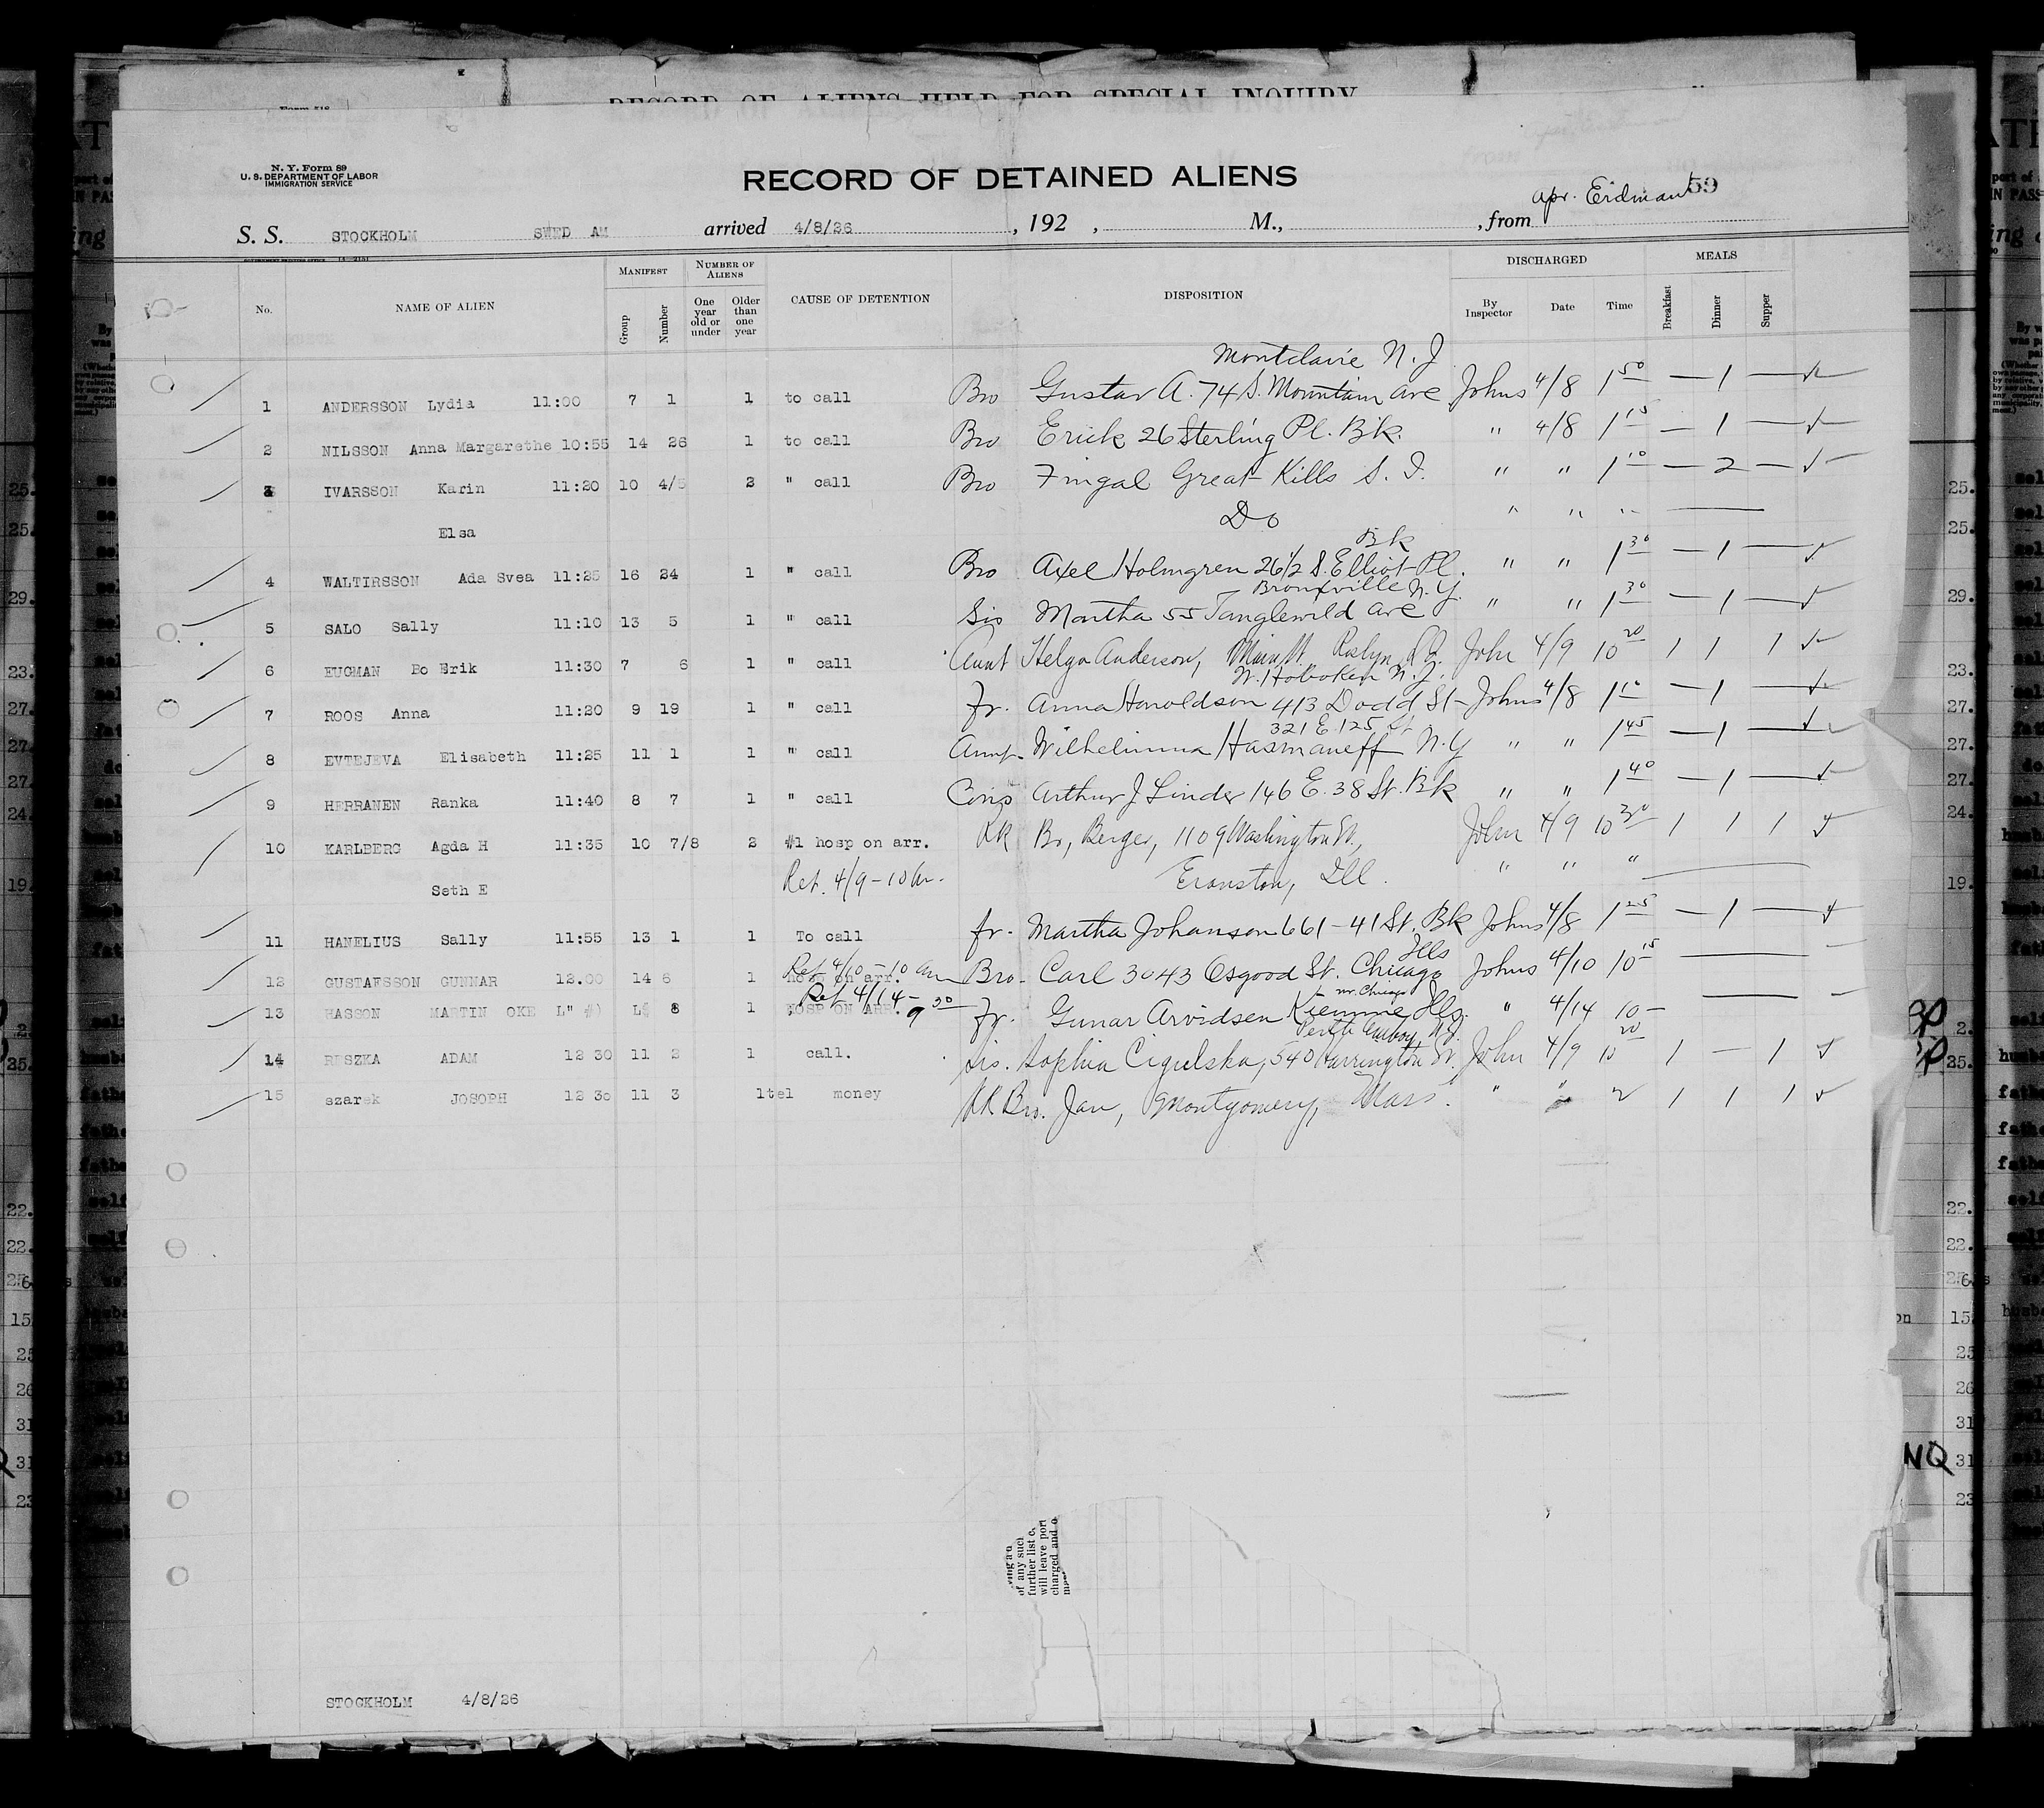 RECORD OF ALIENS HELD FOR SPECIAL INQUIRY
N. Y. Form 89
U. S. DEPARTMENT OF LABOR
IMMIGRATION SERVICE
RECORD OF DETAINED ALIENS
59
S. S. STOCKHOLM SWED AM arrived 4/8/26 , 192 , M., , from apr. Erdman
No. NAME OF ALIEN MANIFEST Group Number NUMBER OF ALIENS One year old or under Older than one year CAUSE OF DETENTION DISPOSITION DISCHARGED By Inspector Date Time MEALS Breakfast Dinner Supper
Montclaire N. J
1 ANDERSSON Lydia 11:00 7 1 1 to call Bro Gustav A. 74 S. Mountain ave Johns 4/8 1 50 — 1 —
2 NILSSON Anna Margarethe 10:55 14 26 1 to call Bro Erick 26 Sterling Pl. Bk. " 4/8 1 15 — 1 —
3 IVARSSON Karin 11:20 10 4/5 2 " call Bro Fingal Great Kills S. I. " " 1 10 — 2 —
Elsa Do " " "
Bk
4 WALTIRSSON Ada Svea 11:25 16 24 1 " call Bro Axel Holmgren 26 1/2 S. Elliot Pl. " " 1 30 — 1 —
Bronxville N. Y.
5 SALO Sally 11:10 13 5 1 " call Sis Martha 55 Tanglewild ave " " 1 30 — 1 —
6 EUGMAN Bo Erik 11:30 7 6 1 " call Aunt Helga Anderson, Main St. Roslyn John 4/9 10 20 1 1 1
W. Hoboken N. J.
7 ROOS Anna 11:20 9 19 1 " call fr. Anna Haroldson 413 Dodd St Johns 4/8 1 10 — 1 —
321 E. 125 St
8 EVTEJEVA Elisabeth 11:25 11 1 1 " call Aunt Wilhelimina Hasmaneff N. Y " " 1 45 — 1 —
9 HERRANEN Ranka 11:40 8 7 1 " call Cous Arthur J Linder 146 E. 38 St. Bk " " 1 40 — 1 —
10 KARLBERG Agda H 11:35 10 7/8 2 #1 hosp on arr. RR Br, Berger, 1109 Washington St, John 4/9 10 30 1 1 1
Seth E Ret. 4/9 - 10 Evanston, Ill. " " "
11 HANELIUS Sally 11:55 13 1 1 To call fr. Martha Johanson 661 - 41 St. Bk Johns 4/8 1 25 — 1 —
Ret 4/10 - 10 am Ills
12 GUSTAFSSON GUNNAR 12.00 14 6 1 hosp on arr. Bro. Carl 3043 Osgood St. Chicago Johns 4/10 10 15
Ret 4/14 - 9 30 nr. Chicago
13 HASSON MARTIN OKE L" #) L$ 8 1 HOSP ON ARR. fr. Gunar Arvidsen Ills. " 4/14 10 —
Perth Amboy, N. J.
14 RESZKA ADAM 12 30 11 2 1 call. Sis. Sophia Cigulska, 540 Harrington St. John 4/9 10 20 1 — 1
15 szarek JOSOPH 12 30 11 3 1tel money RR Bro. Jan, Montgomery, Mass. " " 2 1 1 1
of any such
further list
will leave port
charged and
STOCKHOLM 4/8/26